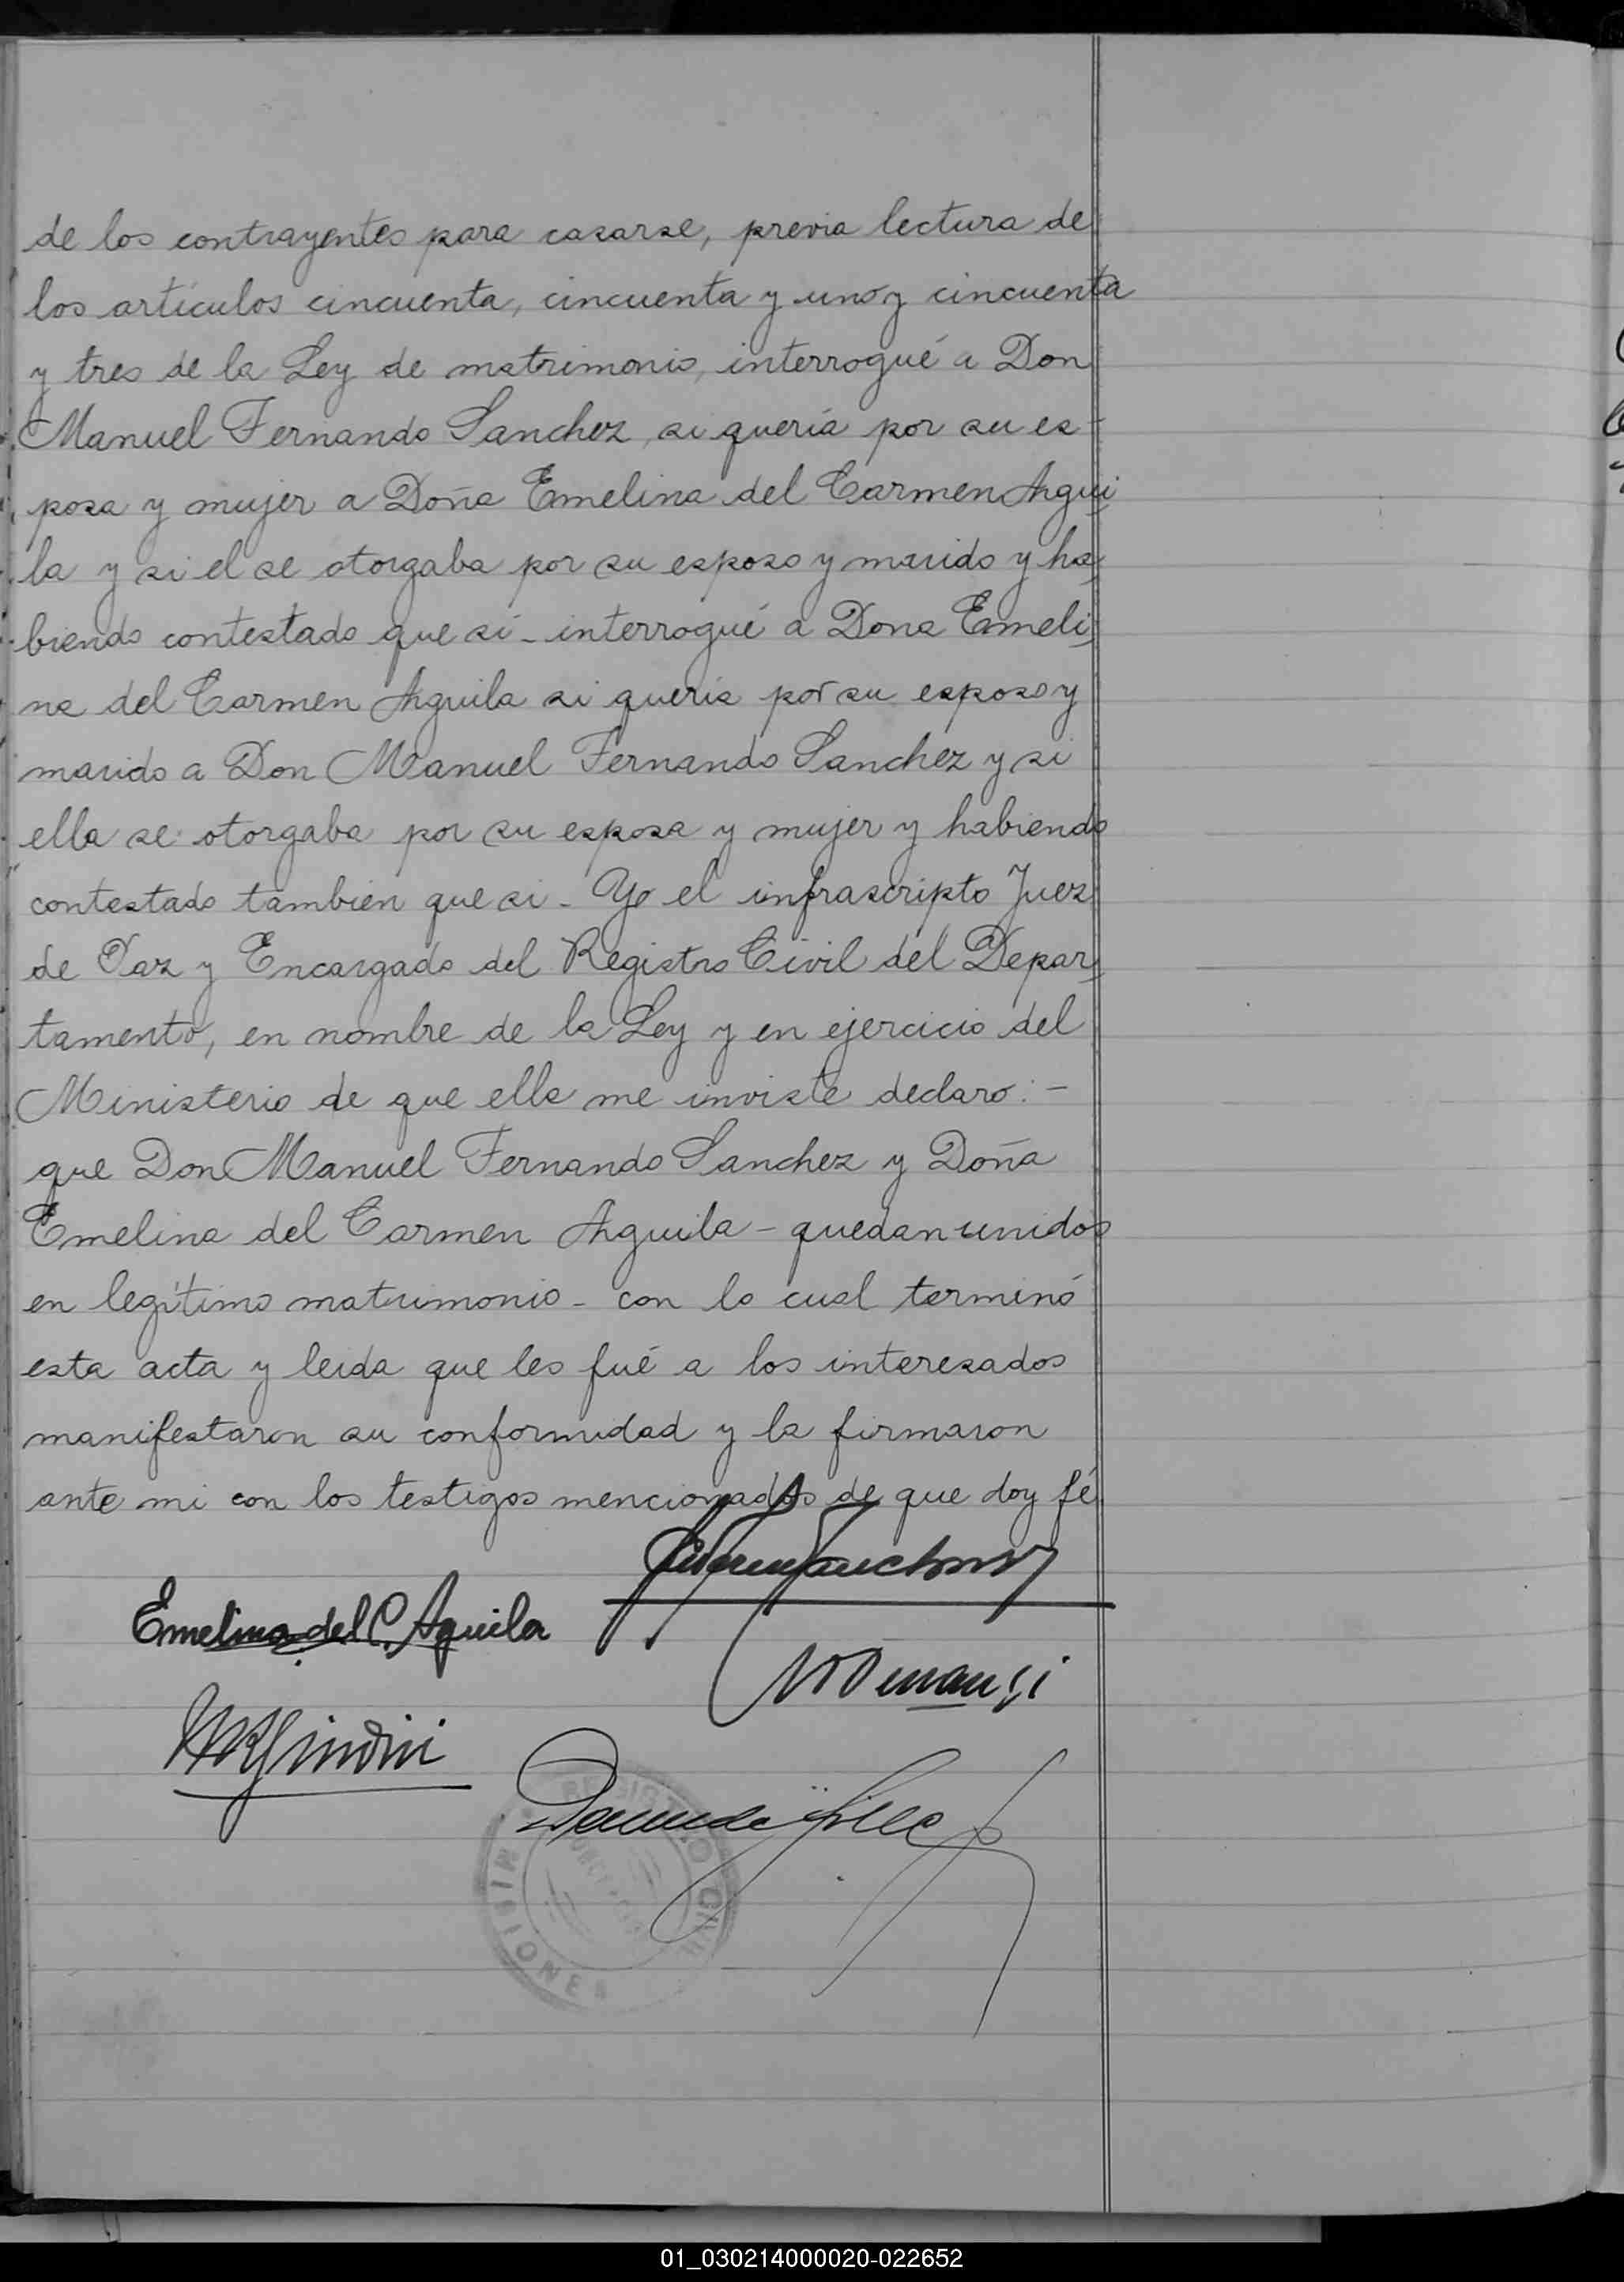 de los contrayentes para casarse, previa lectura de
los artículos cincuenta, cincuenta y uno y cincuenta
y tres de la Ley de matrimonio, interrogué a Don
Manuel Fernando Sanchez, si quería por su es-
posa y mujer a Doña Emelina del Carmen Agui
la y si el se otorgaba por su esposo y marido y ha
biendo contestado que sí - interrogué a Dona Emeli
na del Carmen Aguila si queria por su esposo y
marido a Don Manuel Fernando Sanchez y si
ella se otorgaba por su esposa y mujer y habiendo
contestado tambien que si - Yo el infrascripto Juez
de Paz y Encargado del Registro Civil del Depar
tamento, en nombre de la Ley y en ejercicio del
Ministerio de que ella me inviste declaro: -
que Don Manuel Fernando Sanchez y Doña
Emelina del Carmen Aguila - quedan unidos
en legítimo matrimonio - con lo cual terminó
esta acta y leida que les fué a los interesados
manifestaron su conformidad y la firmaron
ante mi con los testigos mencionados de que doy fé.
Emelina del C. Aguila
REGISTRO CIVIL
MISIONES
01_030214000020-022652